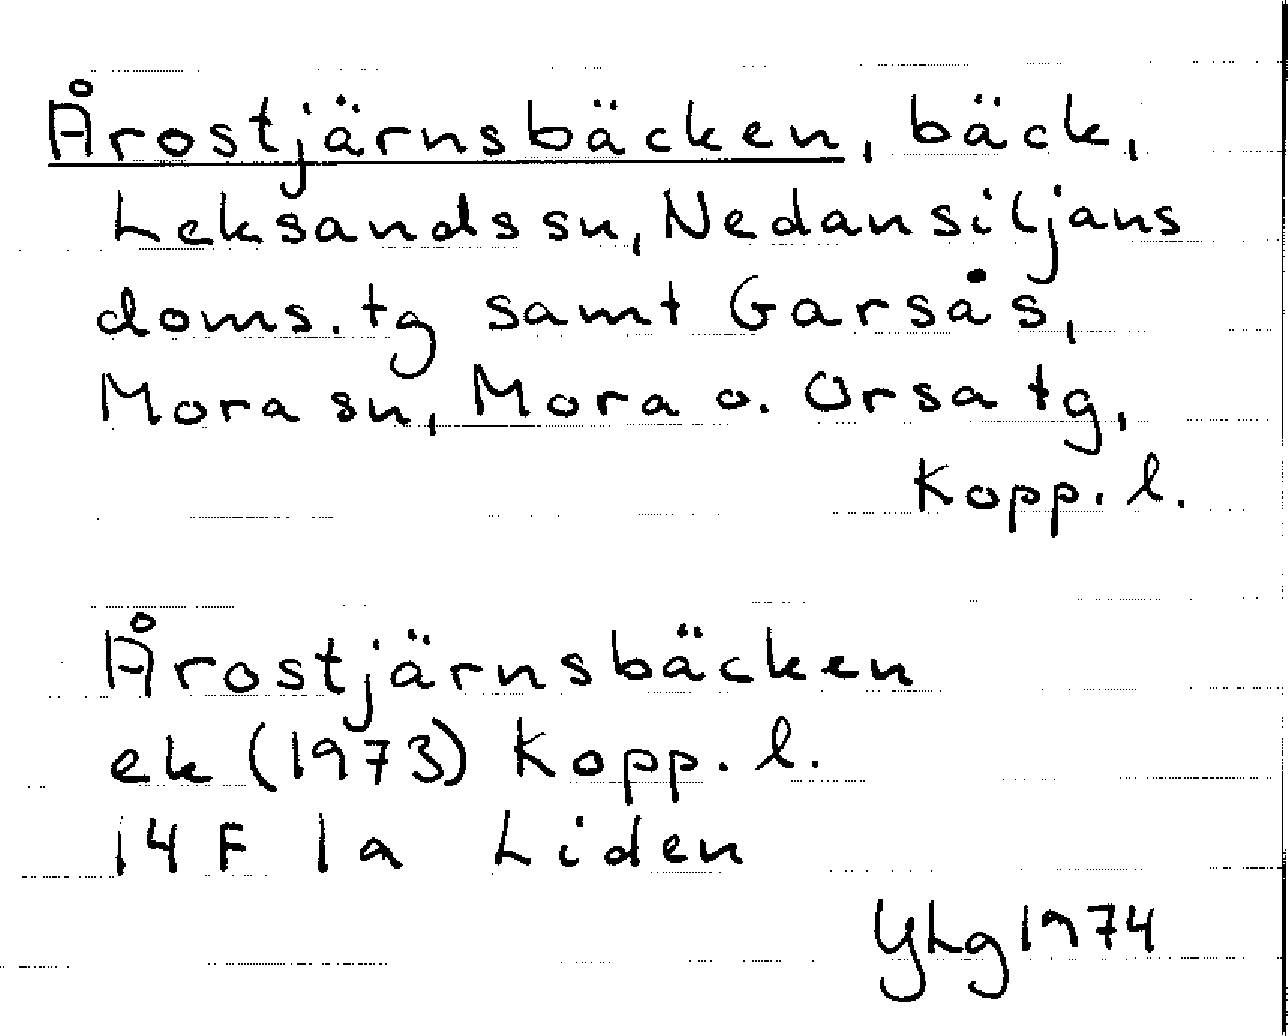 Årostjärnsbäcken, bäck,
Leksands sn, Nedansiljans
doms. tg samt Garsås,
Mora sn, Mora o. Orsa tg,
Kopp. l.
Årostjärnsbäcken
ek (1973) Kopp. l.
14 F 1a Liden
YLg 1974